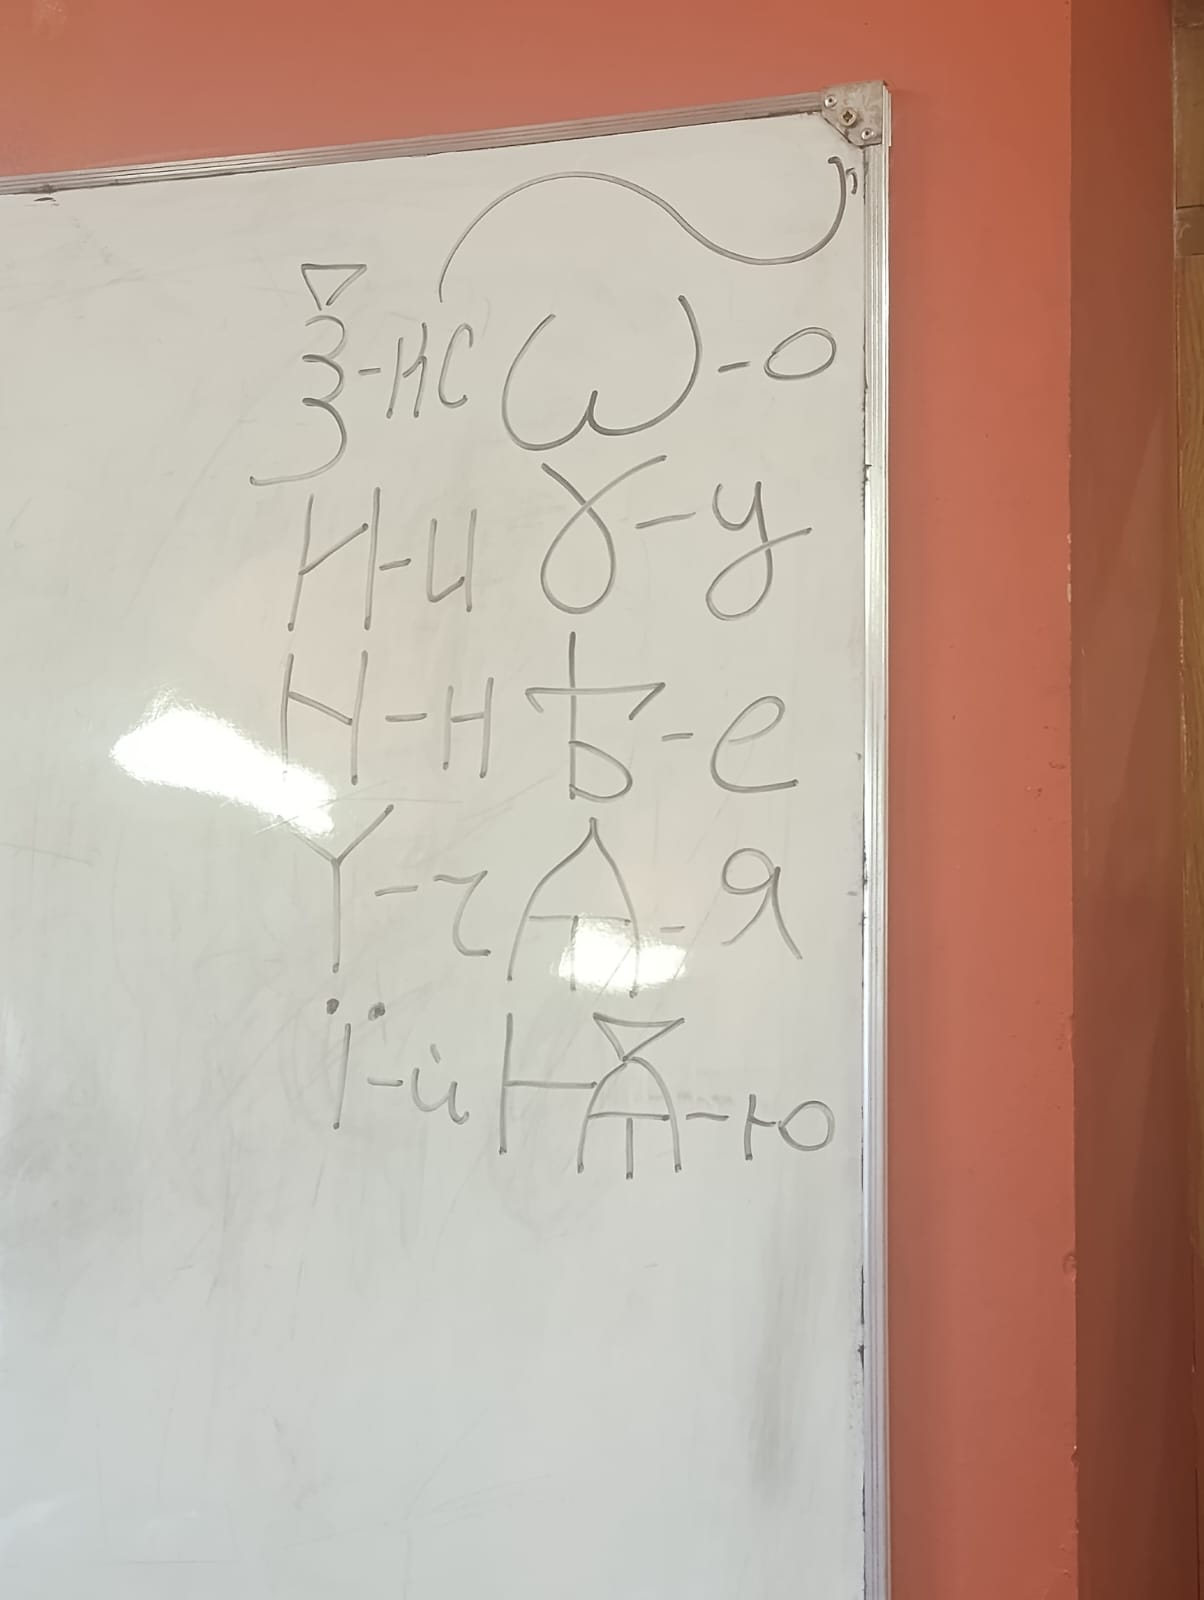 Ѯ-кс Ѡ-о
И-и Ꙋ-у
N-н Ѣ-е
Ү-ч Ѧ-я
Ї-й Ѭ-ю